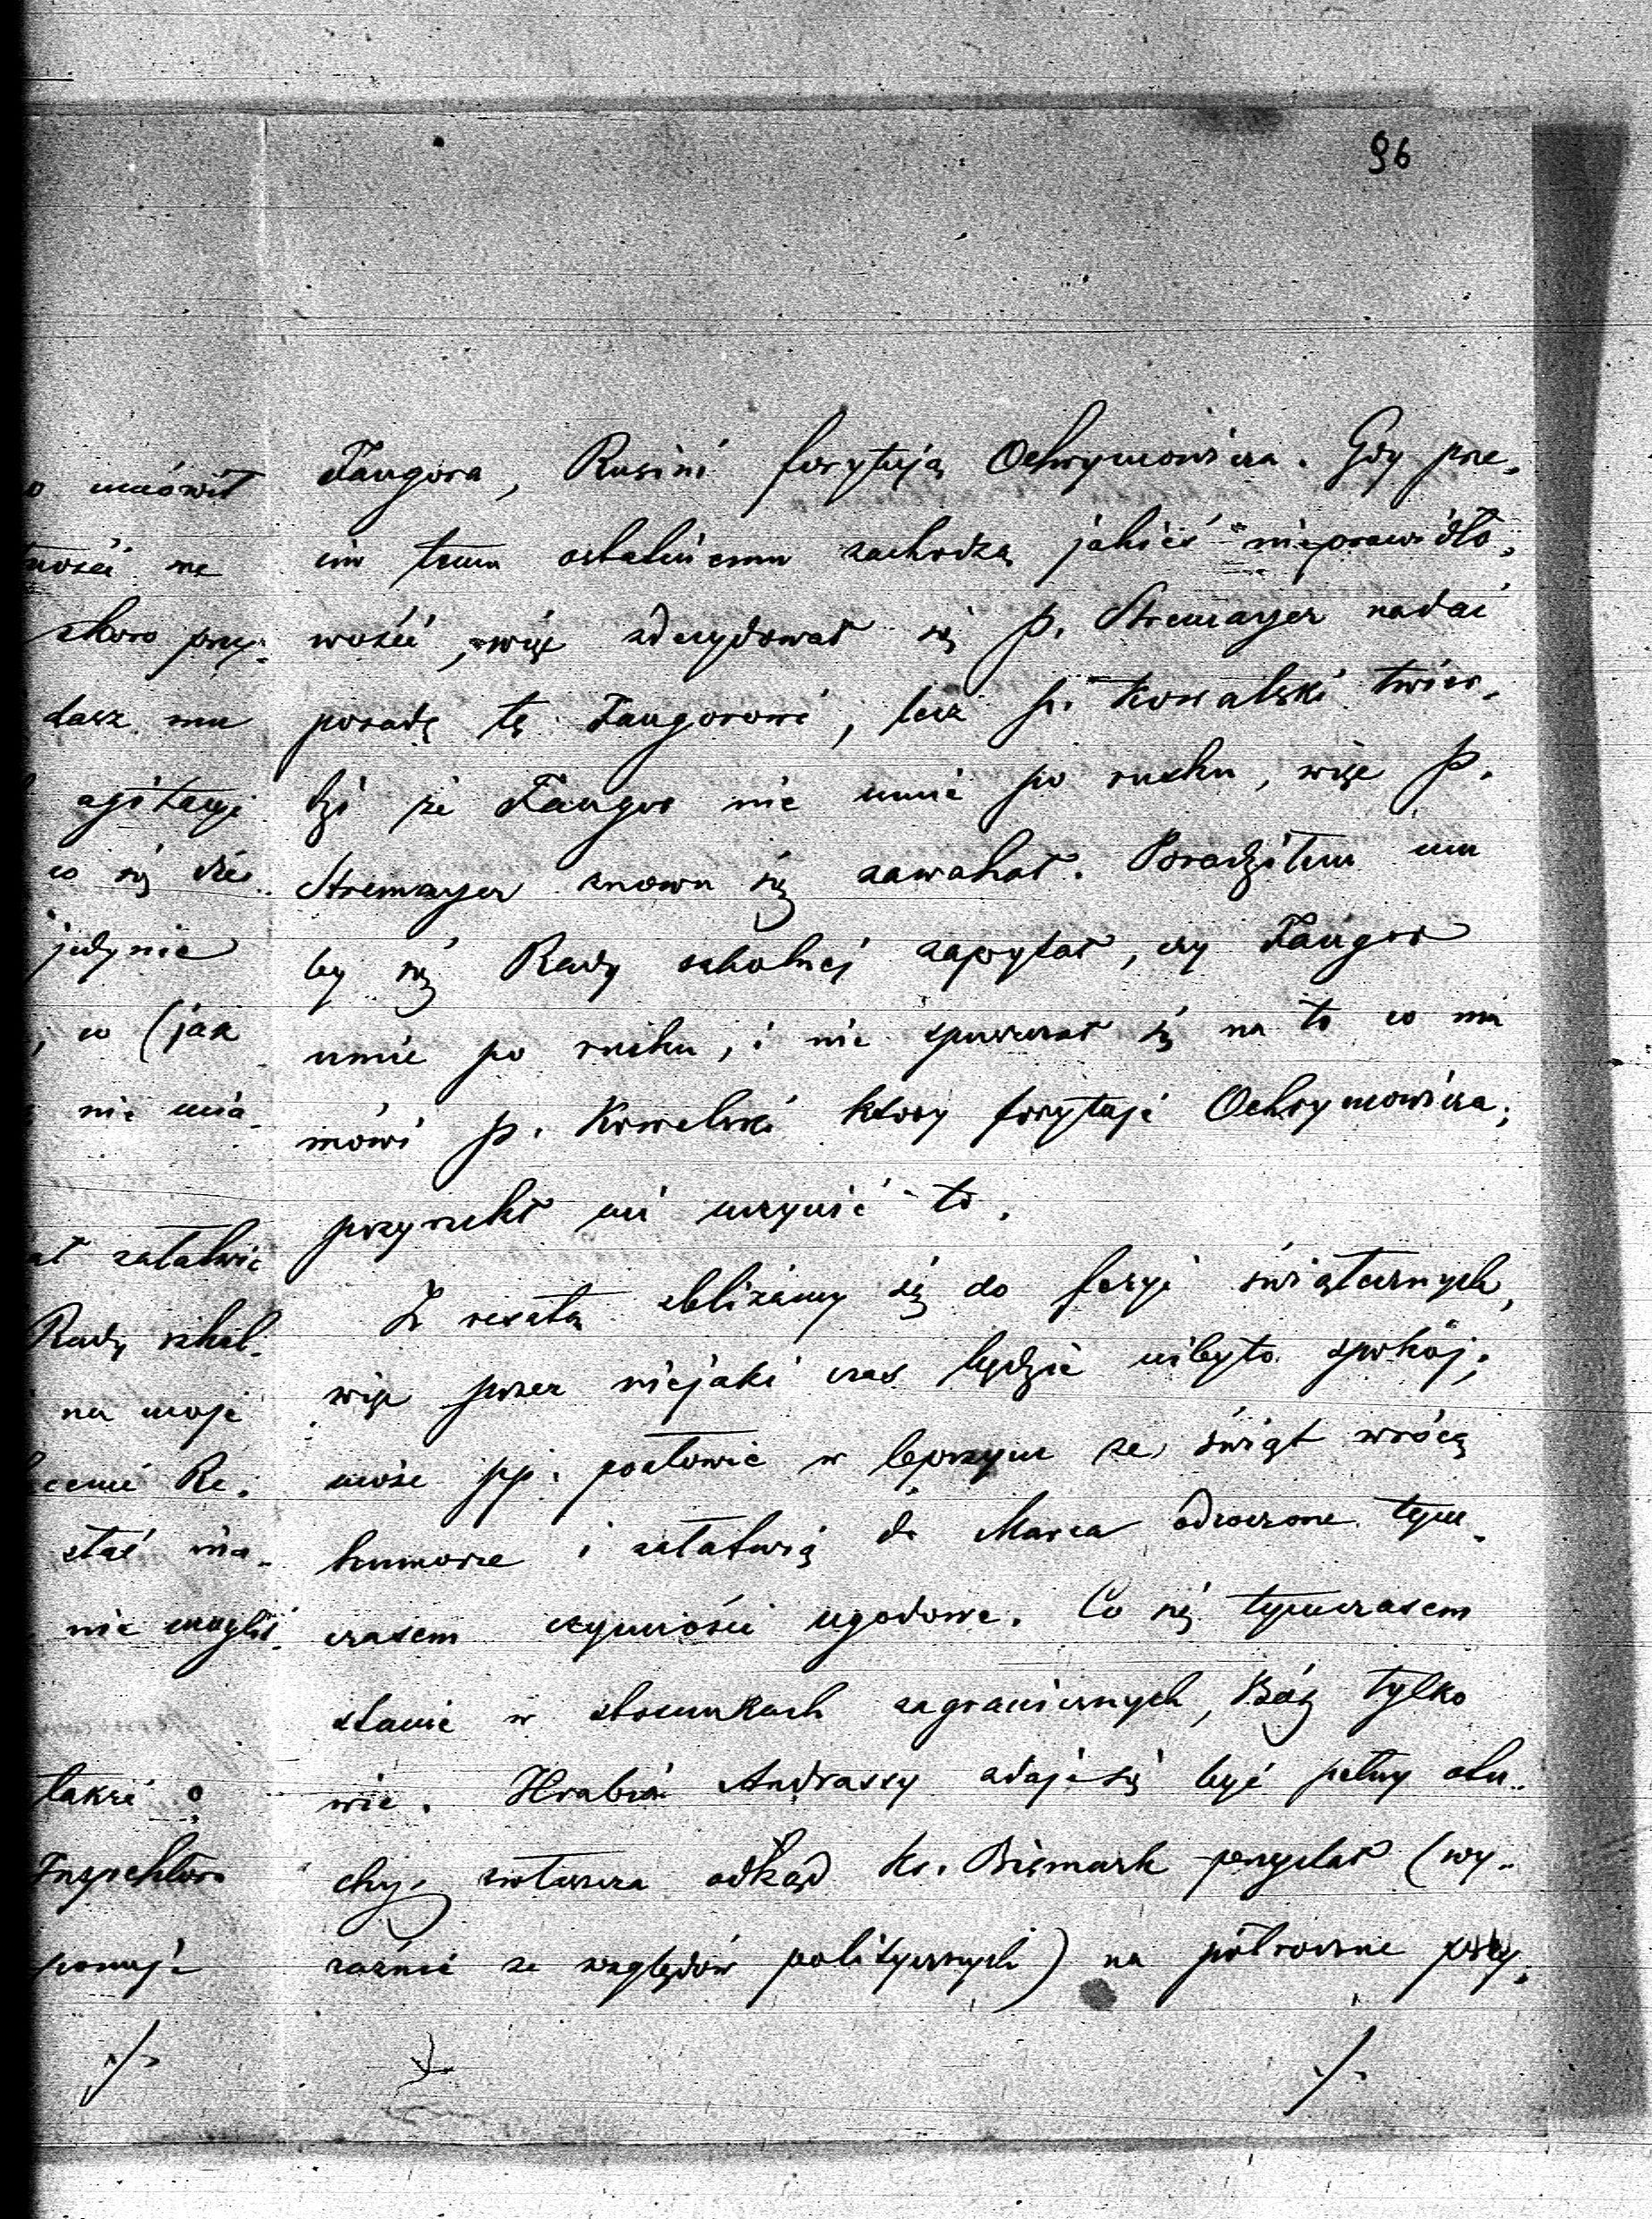 96
Fangora, Rusini forytują Ochrymowicza. Gdy prze-
ciw temu ostatniemu zachodzą jakieś nieprawidło-
wości, więc zdecydował się p. Stremayer nadać
posadę tę Fangorowi, lecz p. Kowalski twier-
dzi że Fangor nie umie po rusku, więc p.
Stremayer znowu się zawahał. Poradziłem mu
by się Rady szkolnej zapytał, czy Fangor
umie po rusku, i nie spuszczał się na to co mu
mówi p. Kowalski który forytuje Ochrymowicza;
przyrzekł mi uczynić to.
Z resztą zbliżamy się do feryj świątecznych,
więc przez niejaki czas będzie niby to spokój;
może pp. posłowie w lepszym ze świąt wrócą
humorze i załatwią do Marca odroczone tym-
czasem czynności ugodowe. Co się tymczasem
stanie w stosunkach zagranicznych, Bóg tylko
wie. Hrabia Andrassy zdaje się być pełny otu-
chy, zwłaszcza odkąd ks. Bismark przystał (wy-
raźnie ze względów politycznych) na półroczne przy-
./.
o mówił
ności we
skoro przy-
dasz mu
agitacyi
co się dzie-
jedynie
, co (jak
nie mia-
ał załatwić
Rady szkol-
na moje
Re-
stać nie-
nie mogli
także o
Inspektora
./.